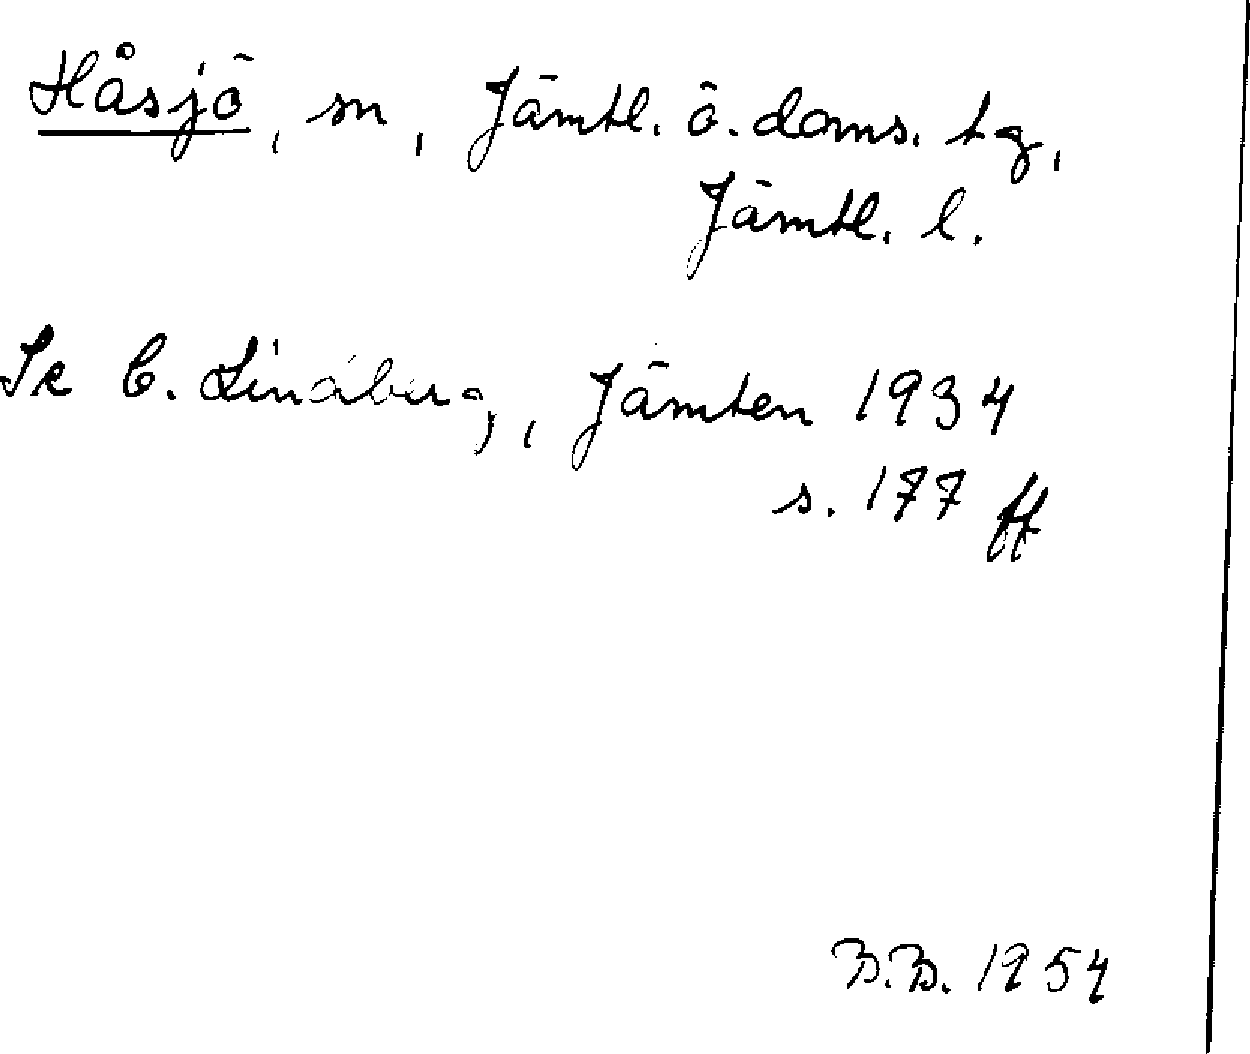 Håsjö, sn, Jämtl. ö. doms. tg,
Jämtl. l.
Se C. Lindberg, Jämten 1934
s. 177 ff
B.B. 1954